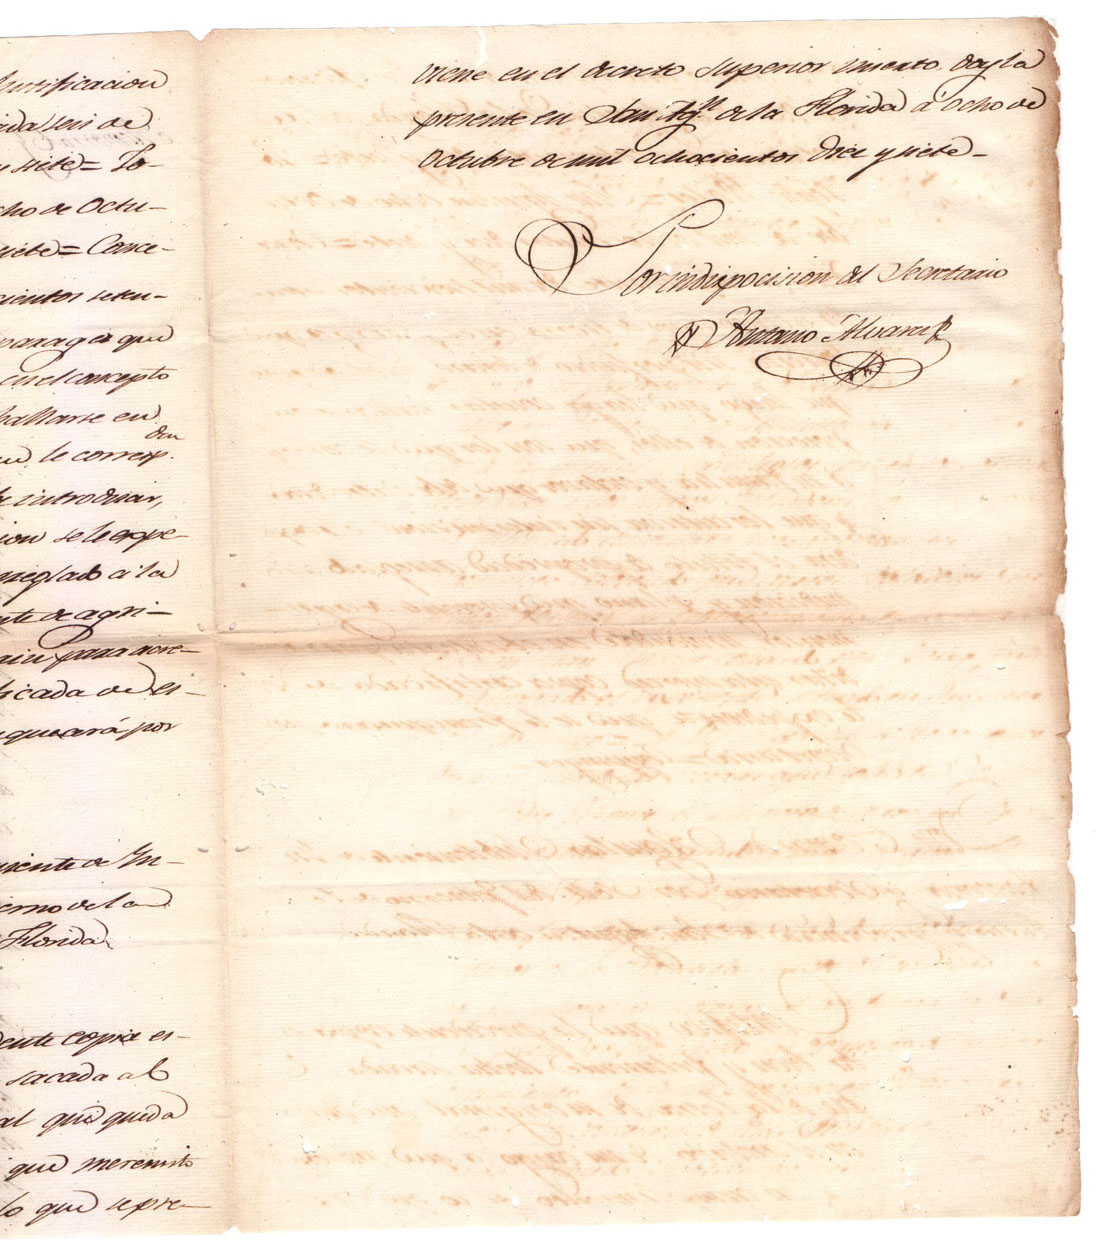 unificacion
de
y siete = Yo
cho de Octu-
siete = Conce-
cientos seten-
parages que
en el concepto
hallarse en
le corresp.den
introducir,
cion se le expe-
arreglado a la
te de agri-
para acre-
ficada de es-
quedará por
niente de In-
ierno de la
Florida
dente copia es-
sacada al
al que queda
que me remito
lo que se pre-
viene en el decreto Superior inserto doy la
presente en San Agn. de la Florida á ocho de
Octubre de mil ochocientos diez y siete-
Por indisposicion del Secretario
Antonio Alvarez